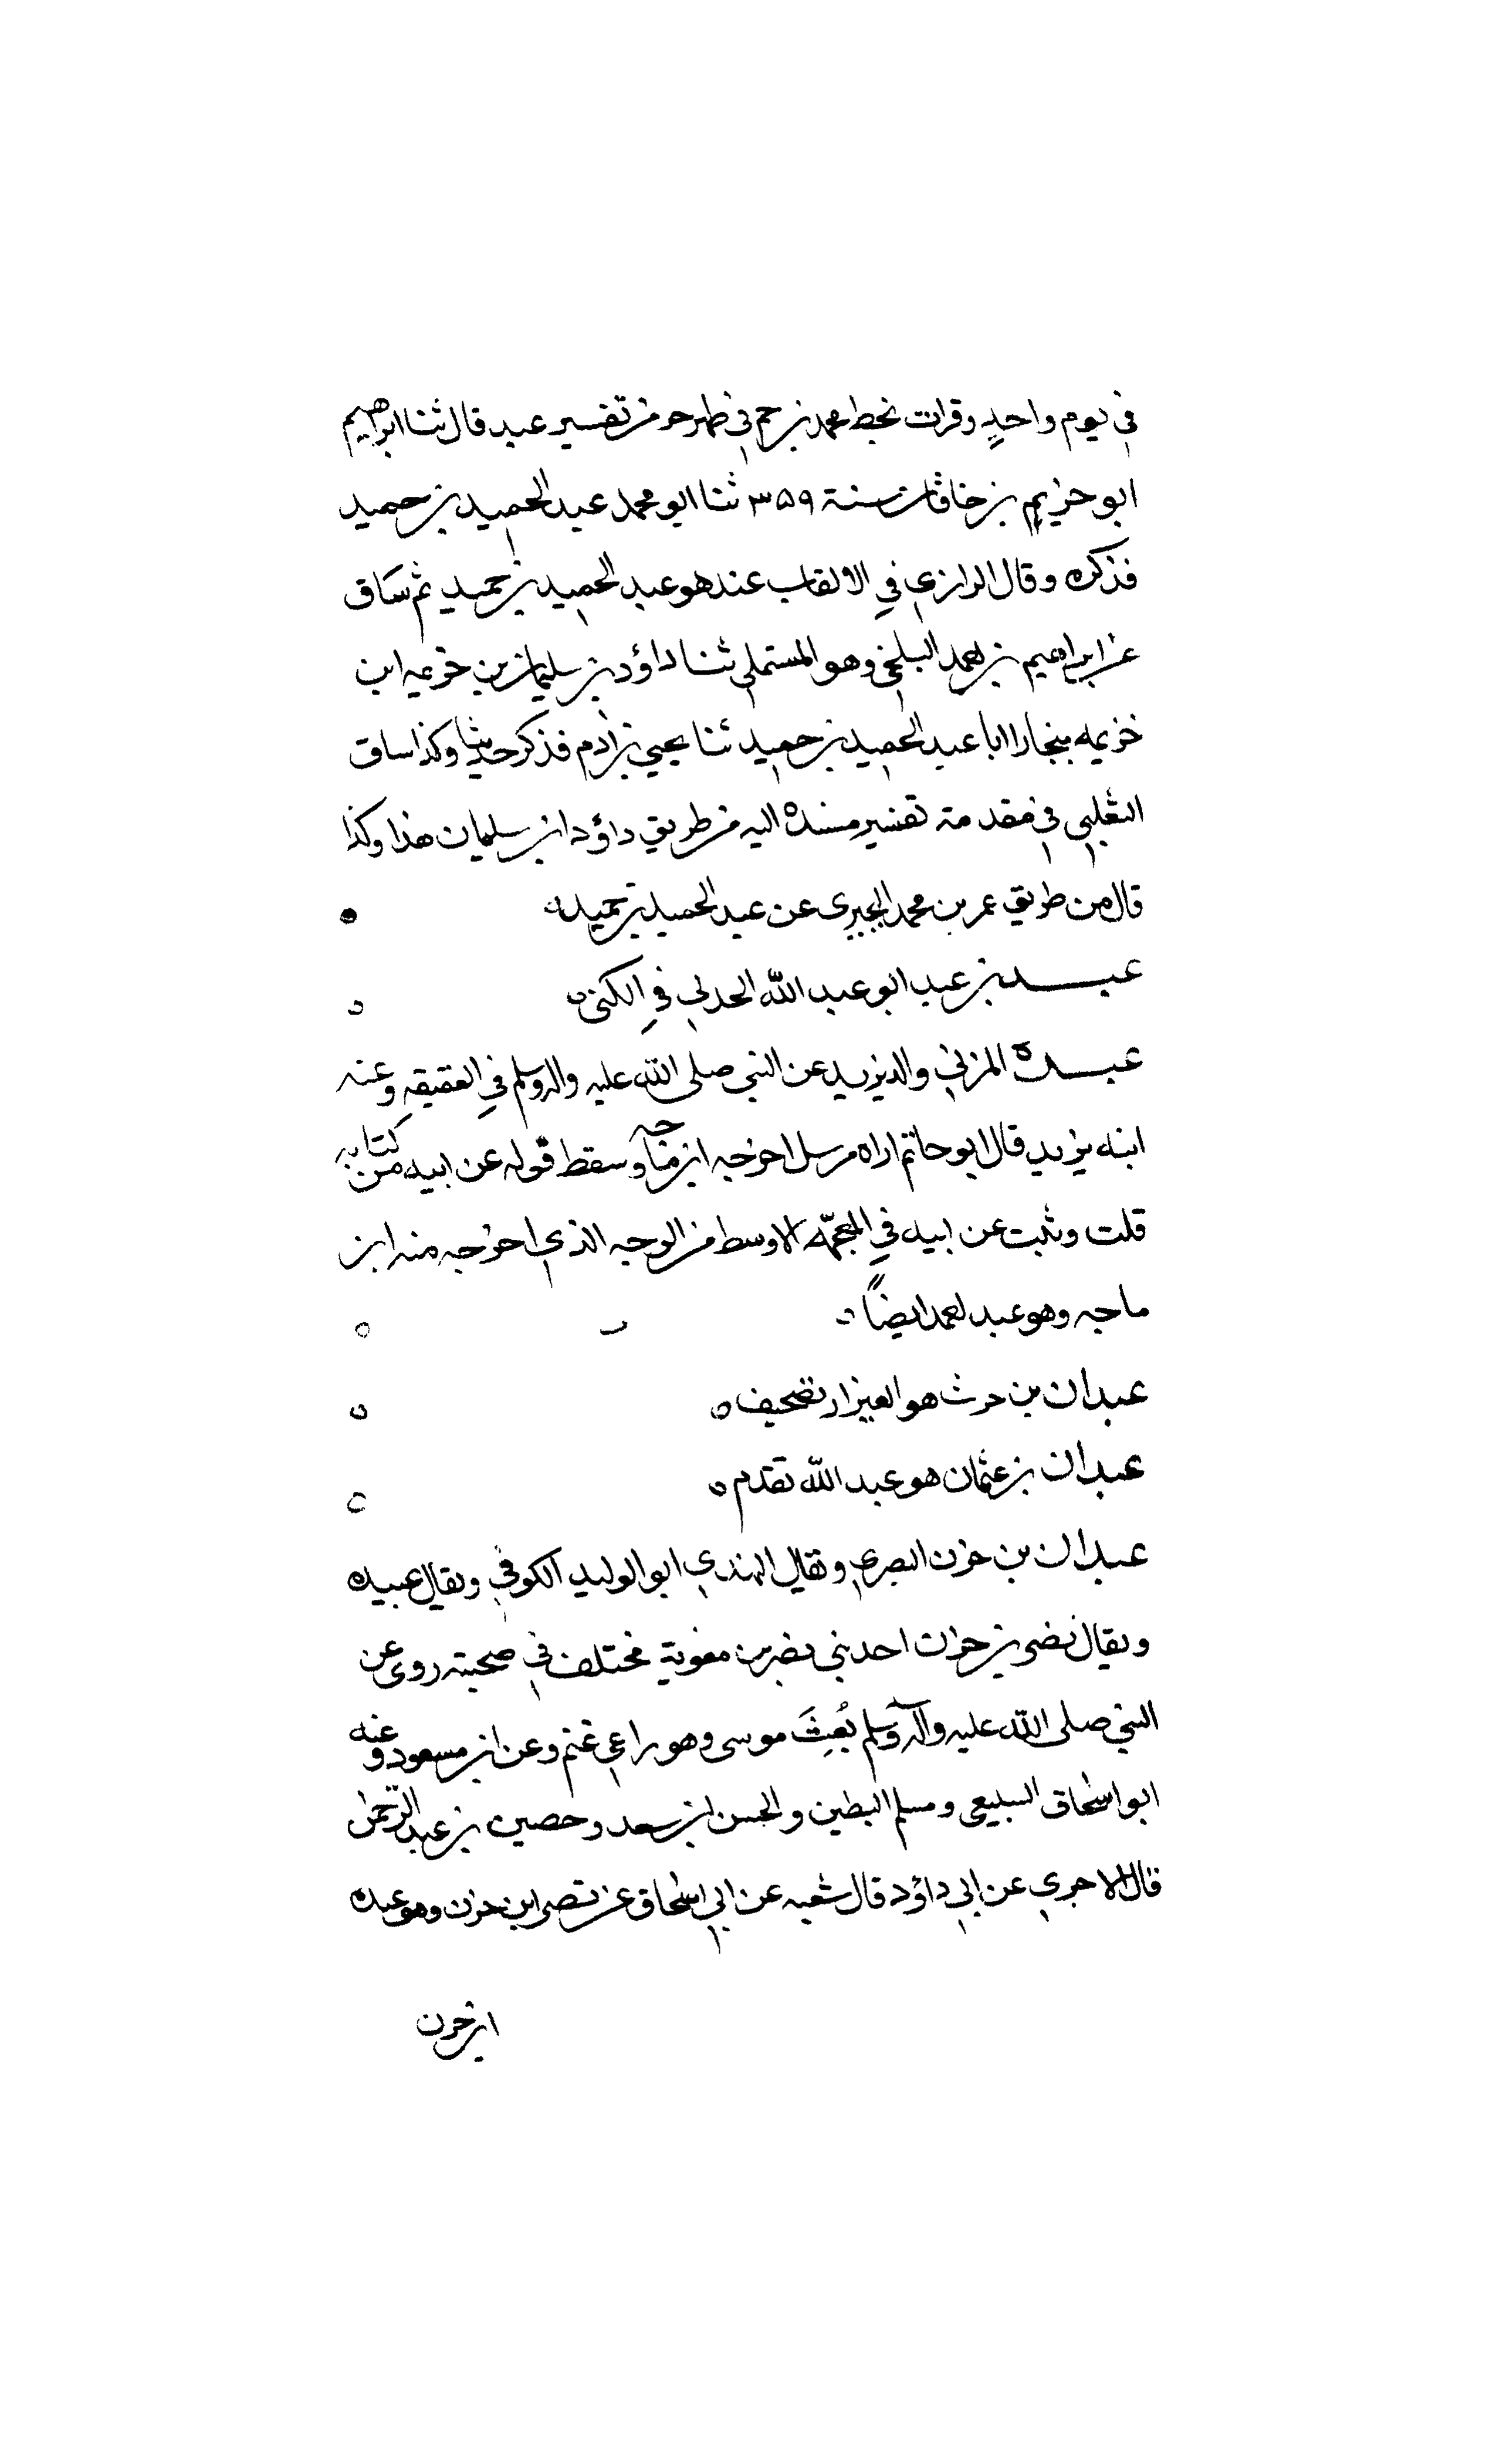 في يوم واحدٍ وقرات بخط محمد بن حم في ظهر حر من تفسير عبد قال ثنا ابراهيم
ابو خزيم بن خاقان سنة ٣٥٩ ثنا ابو محمد عبد الحميد بن حميد
فذكره وقال الرازي في الالقاب عند هو عبد الحميد بن حميد ثم ساق
عن ابراهيم بن احمد البلخي وهو المستملي ثنا داؤد بن سليمان بن خزيمه ابن
خزيمه ببخارا ابا عبد الحميد بن حميد ثنا يحيي بن ادم فذكر حديثا وكذا ساق
الثعلبي في مقدمة تفسير مسنده اليه من طريق داؤد ابن سليمان هذا وكذا
قال من طريق عمر بن محمد البجيرى عن عبد الحميد بن حميد
عبد بن عبد ابو عبد الله الجدلي في الكنى
عبدة المزني والد يزيد عن النبي صلى الله عليه واله وسلم في العقيقه وعنه
ابنه يزيد قال ابو حاتم اراه مرسل اخرجه ابن ماجه وسقط قوله عن ابيه من كتابه
قلت وثبت عن ابيه في المعجم الاوسط من الوجه الذي اخرجه منه ابن
ماجه وهو عبد احمد ايضاً
عبدان بن حرث هو العيزار تصحيف
عبدان بن عثمان هو عبد الله تقدم
عبدان بن حزن البصري ويقال الهندي ابو الوليد الكوفي ويقال عبيده
ويقال نصر بن حزن احد بني نصر بن معوية مختلف في صحبته روى عن
النبي صلى الله عليه وآله وسلم بُعِثَ موسى وهو راعي غنم وعن ابن مسعود وعنه
ابو اسحاق السبيعي ومسلم البطين والحسن ابن سعد وحصين بن عبد الرحمن
قال الاجري عن ابي داؤد قال شعبه عن ابي اسحاق عن نصر ابن حزن وهو عبده
ابن حزن